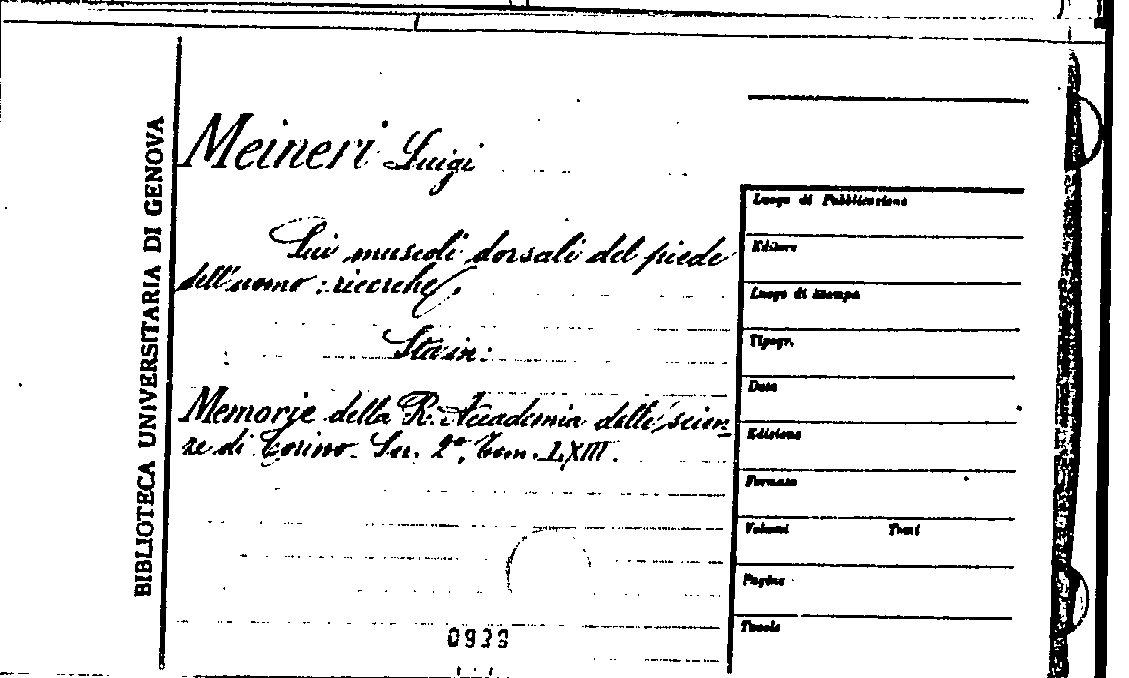 BIBLIOTECA UNIVERSITARIA DI GENOVA
Meineri Luigi
Sui muscoli dorsali del piede
dell'uomo: ricerche.
Sta in:
Memorie della R. Accademia delle scien
ze di Torino. Ser. 2ª, Tom. LXIII.
0939
Luogo di Pubblicazione
Editore
Luogo di stampa
Tipogr.
Data
Edizione
Formato
Volumi Tomi
Pagine
Tavole